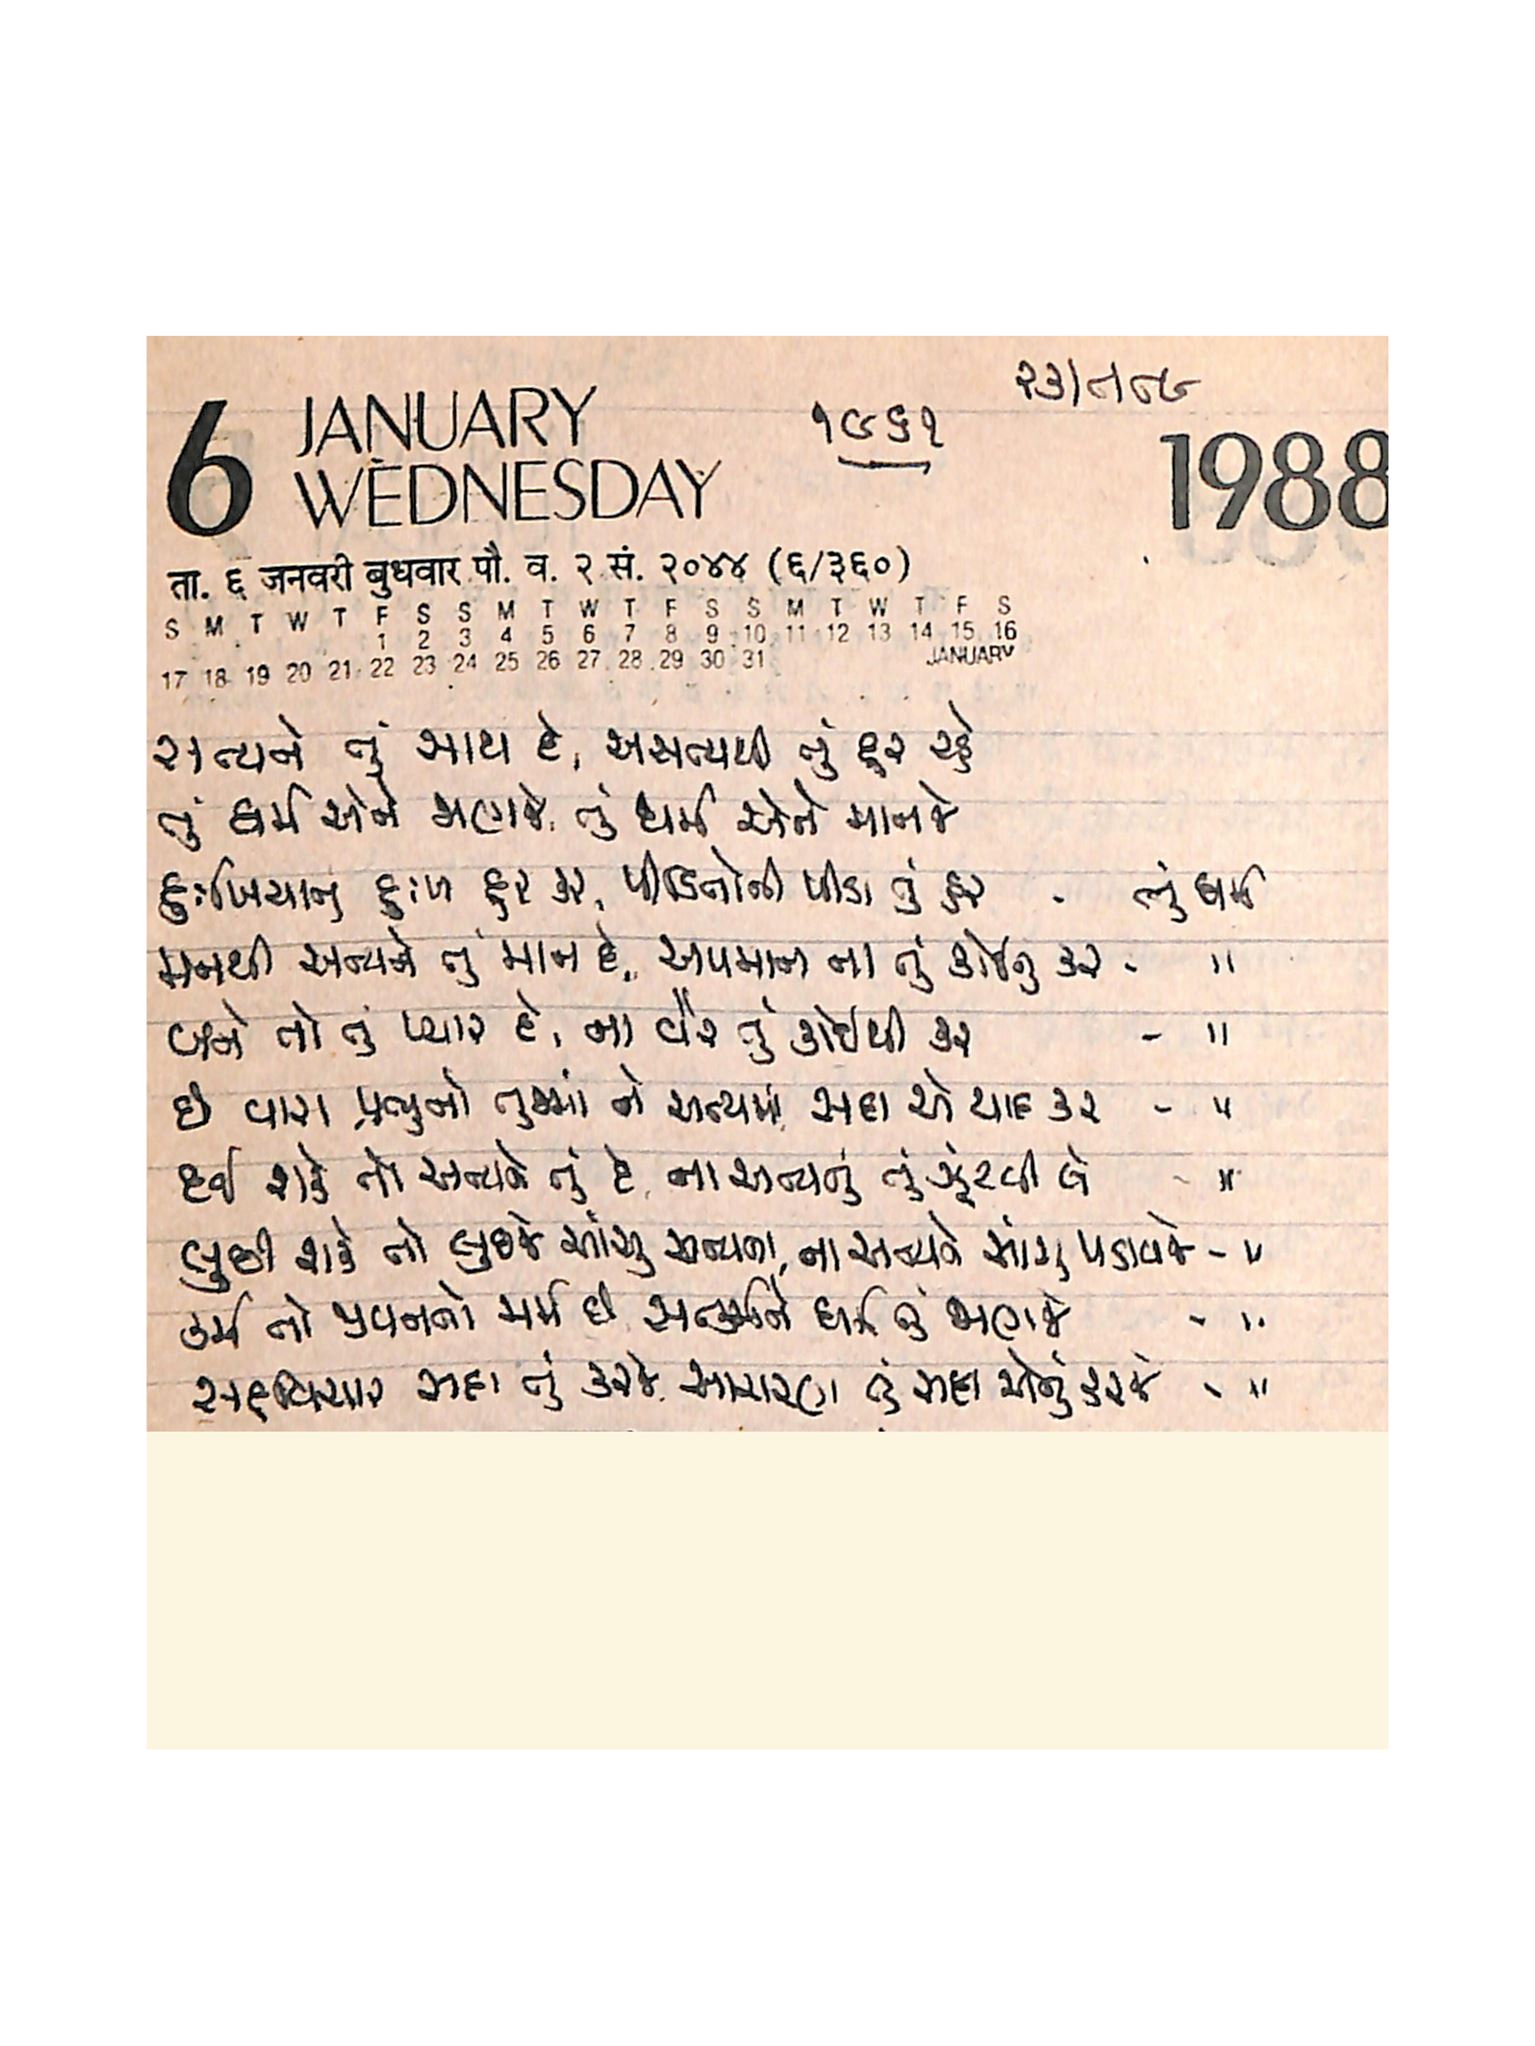 ૨૩/૧/૮૯
૧૬૬૧
6 JANUARY
WEDNESDAY
1988
ता. ६ जनवरी बुधवार पौ. व. २ सं. २०४४ (६/३६०)
S M T W T F S S M T W T F S S M T W T F S
1 2 3 4 5 6 7 8 9 10 11 12 13 14 15 16
17 18 19 20 21 22 23 24 25 26 27 28 29 30 31 JANUARY
સત્યને તું સાથ દે, અસત્યથી તું દૂર રહે
તું ધર્મ એને જાણજે, તું ધર્મ એને માનજે
દુઃખિયાનું દુઃખ દુર કર, પીડિતોની પીડા તું હર - તું ધર્મ
મનથી અન્યને તું માન દે, અપમાન ના તું કોઈનું કર - "
બને તો તું પ્યાર દે, ના વૈર તું કોઈથી કર - "
છે વાસ પ્રભુનો તુજમાં ને અન્યમાં, સદા એ યાદ કર - "
દઈ શકે તો અન્યને તું દે, ના અન્યનું તું ઝૂંટવી લે - "
લુછી શકે તો લુછજે આંસુ અન્યના, ના અન્યને આંસુ પડાવજે - "
કર્મ તો જીવનનો મર્મ છે, સત્કર્મને ધર્મ તું જાણજે - "
સદ્દવિચાર સદા તું કરજે, આચરણ તું સદા એનું કરજે - "